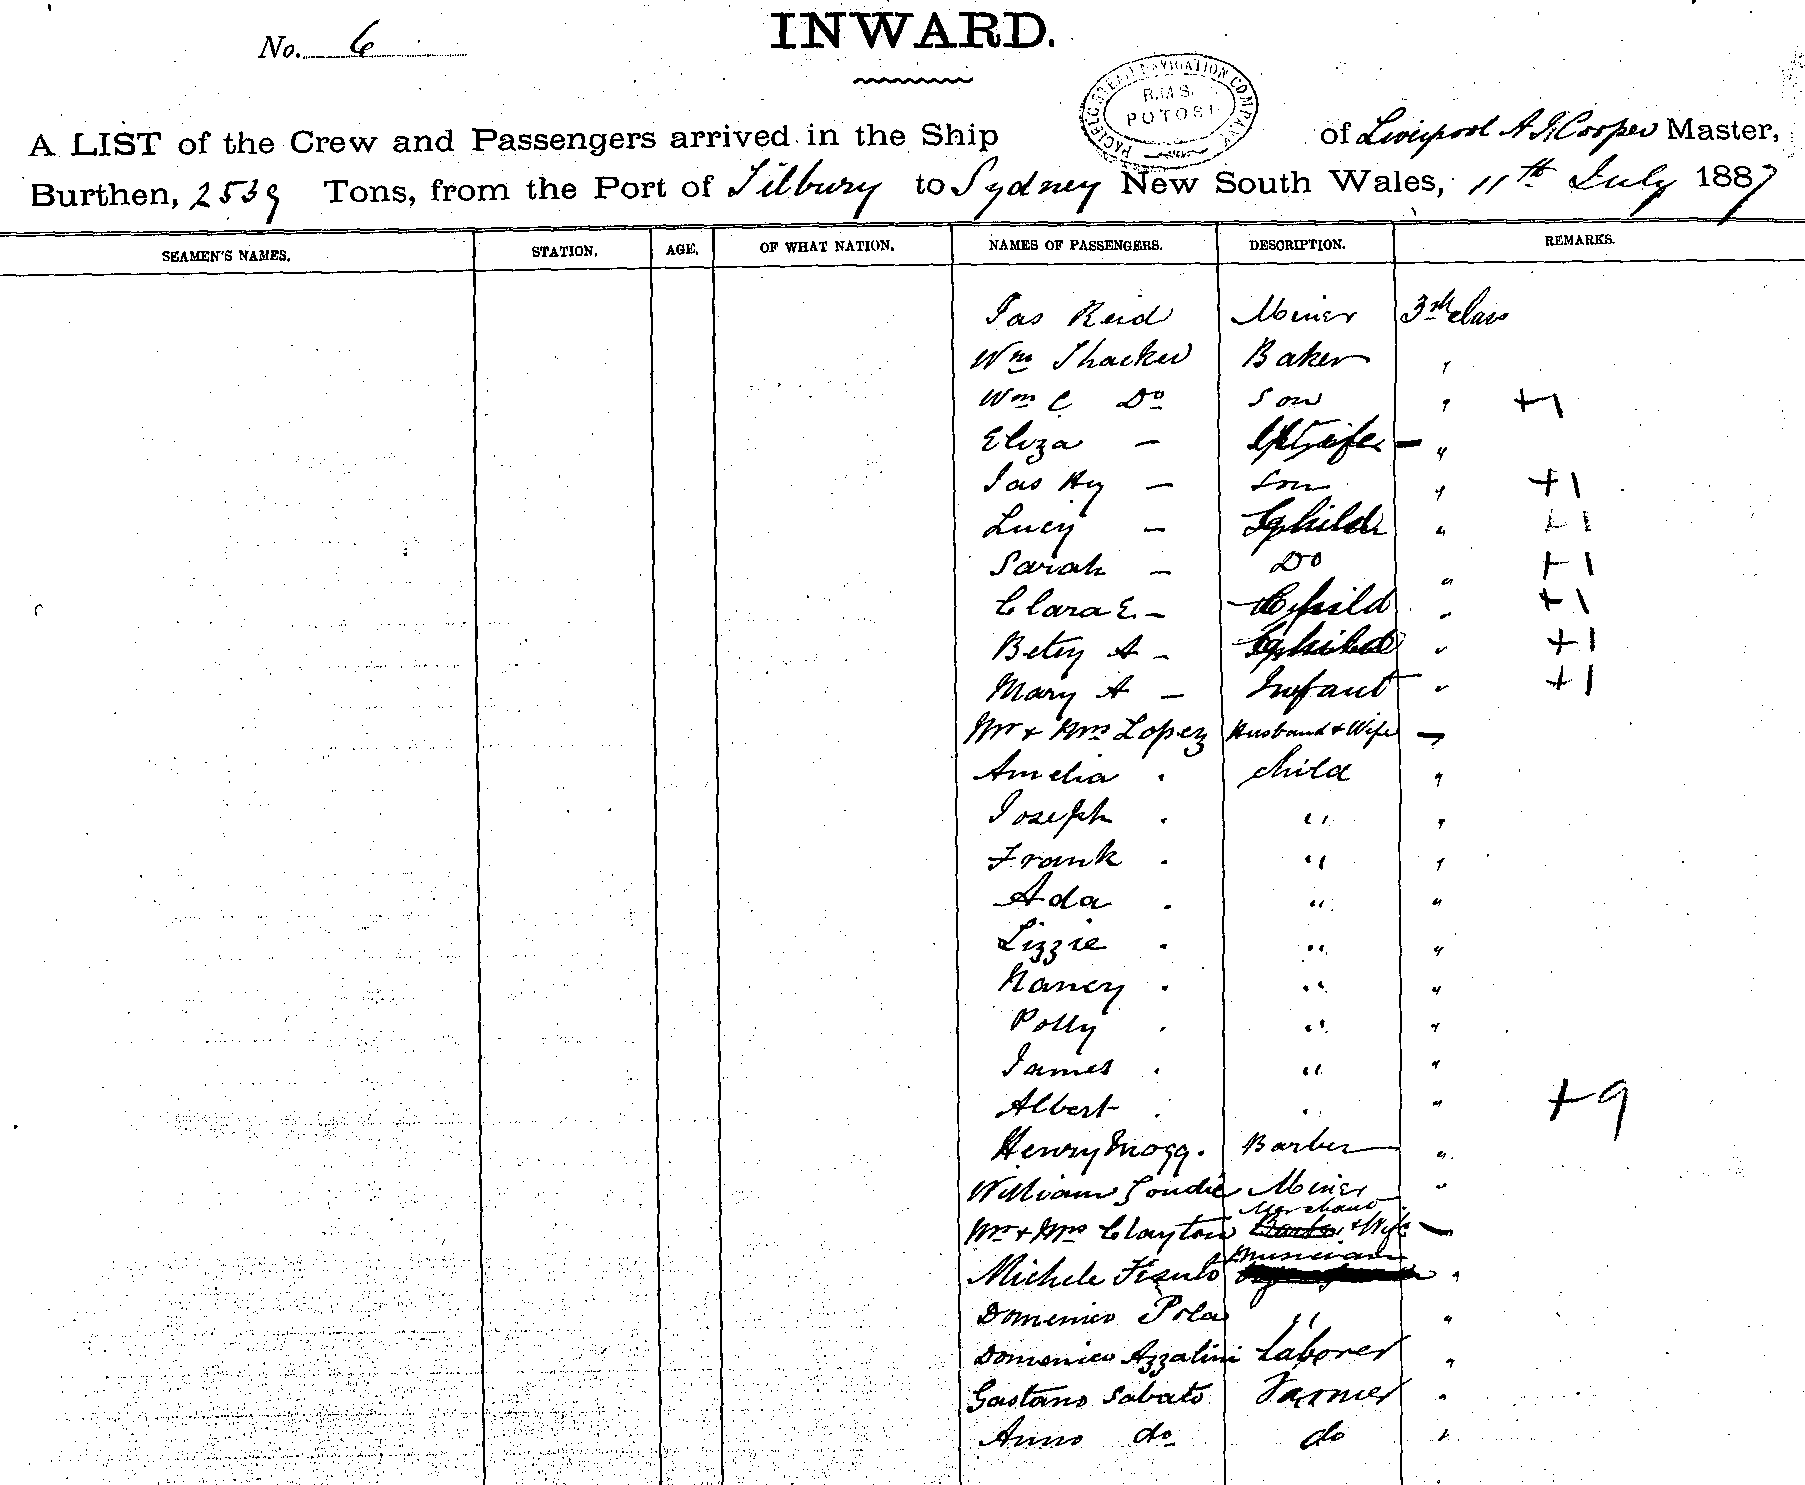 No. 6
INWARD.
PACIFIC STEAM NAVIGATION COMPANY
R.M.S.
POTOSI
A LIST of the Crew and Passengers arrived in the Ship of Liverpool A J Cooper Master,
Burthen, 2539 Tons, from the Port of Tilbury to Sydney New South Wales, 11th July 1887
SEAMEN'S NAMES. STATION. AGE. OF WHAT NATION. NAMES OF PASSENGERS. DESCRIPTION. REMARKS.
Jas Reid Miner 3rd class
Wm Thacker Baker "
Wm C Do Son " +1
Eliza — Wife — "
Jas Hy — Son " +1
Lucy — Child " +1
Sarah — Do " +1
Clara E. — Child " +1
Betsy A — Child " +1
Mary A — Infant " +1
Mr & Mrs Lopez Husband & Wife —
Amelia . child "
Joseph . " "
Frank . " "
Ada . " "
Lizzie . " "
Nancy . " "
Polly . " "
James . " "
Albert . " " +9
Henry Mogg. Barber "
William Goudie Miner "
Merchant
Mr & Mrs Clayton & Wife —
Musician
Michele "
Domenico Pola " "
Domenico Azzalini Laborer "
Gaetano Sabato Farmer "
Anno do do "